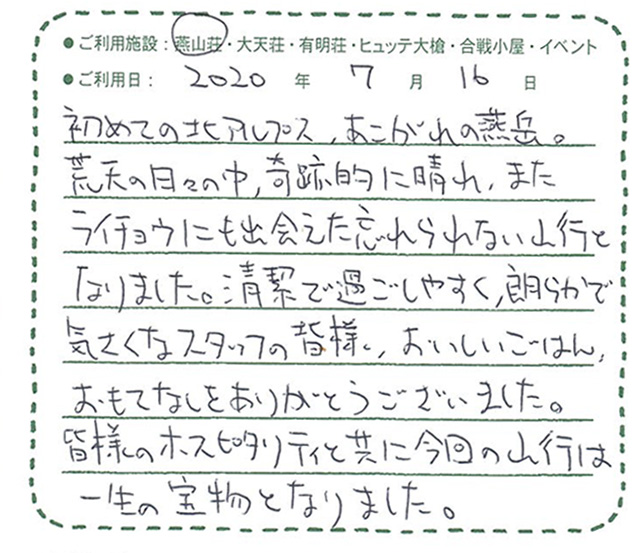 ●ご利用施設：燕山荘・大天荘・有明荘・ヒュッテ大槍・合戦小屋・イベント
●ご利用日： 2020 年 7 月 16 日
初めての北アルプス、あこがれの燕岳。
荒天の日々の中、奇跡的に晴れ、また
ライチョウにも出会えた忘れられない山行と
なりました。清潔で過ごしやすく、朗らかで
気さくなスタッフの皆様、おいしいごはん、
おもてなしをありがとうございました。
皆様のホスピタリティと共に今回の山行は
一生の宝物となりました。